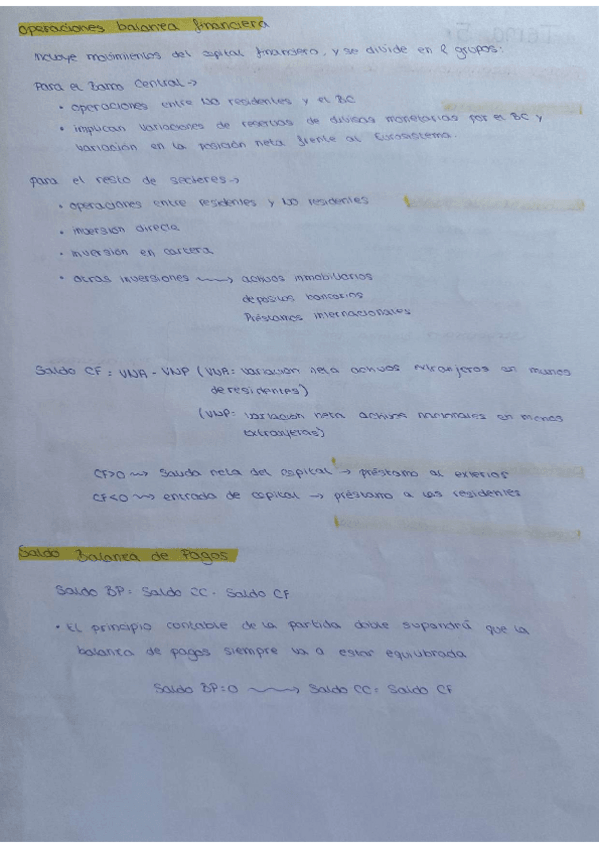 Operaciones balanza financiera
Incluye movimientos del capital financiero, y se divide en 2 grupos:
Para el Banco Central →
• operaciones entre no residentes y el BC
• implican variaciones de reservas de divisas monetarias por el BC y
variación en la posición neta frente al Eurosistema.
para el resto de sectores →
• operaciones entre residentes y no residentes
• inversión directa
• inversión en cartera
• otras inversiones → activos inmobiliarios
depositos bancarios
Préstamos internacionales
Saldo CF = VNA - VNP (VNA: variación neta activos extranjeros en manos
de residentes)
(VNP: variación neta activos nacionales en manos
extranjeras)
CF>0 → Salida neta del capital → préstamo al exterior
CF<0 → entrada de capital → préstamo a los residentes
Saldo Balanza de Pagos
Saldo BP = Saldo CC - Saldo CF
• El principio contable de la partida doble supondrá que la
balanza de pagos siempre va a estar equilibrada
Saldo BP=0 → Saldo CC = Saldo CF